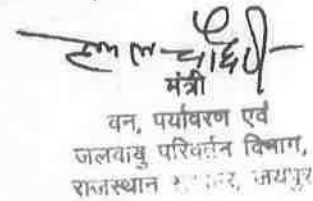 चौधरी
मंत्री
वन, पर्यावरण एवं
जलवायु परिवर्तन विभाग,
राजस्थान जयपुर